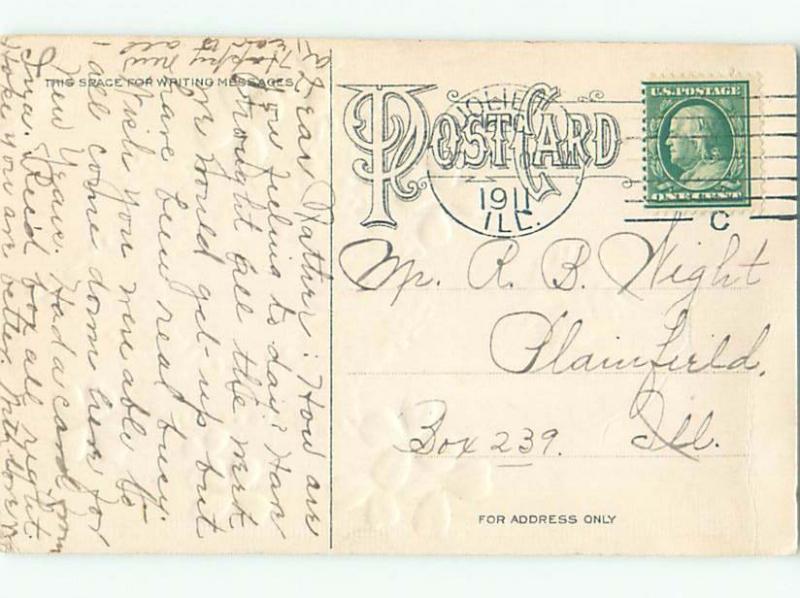 THIS SPACE FOR WRITING MESSAGES
Dear Father: How are
you feeling to day? Have
thought all the week
we would get up but
have been real busy.
Wish you were able to
all come down here for
New Years. Had a card from
Inza. Rec'd box all right.
Hope you are better. With love
a Happy New
all
POST CARD
JOLIET
1911
ILL.
C
U.S. POSTAGE
ONE CENT
Mr. R. B. Wight
Plainfield,
Box 239. Ill.
FOR ADDRESS ONLY